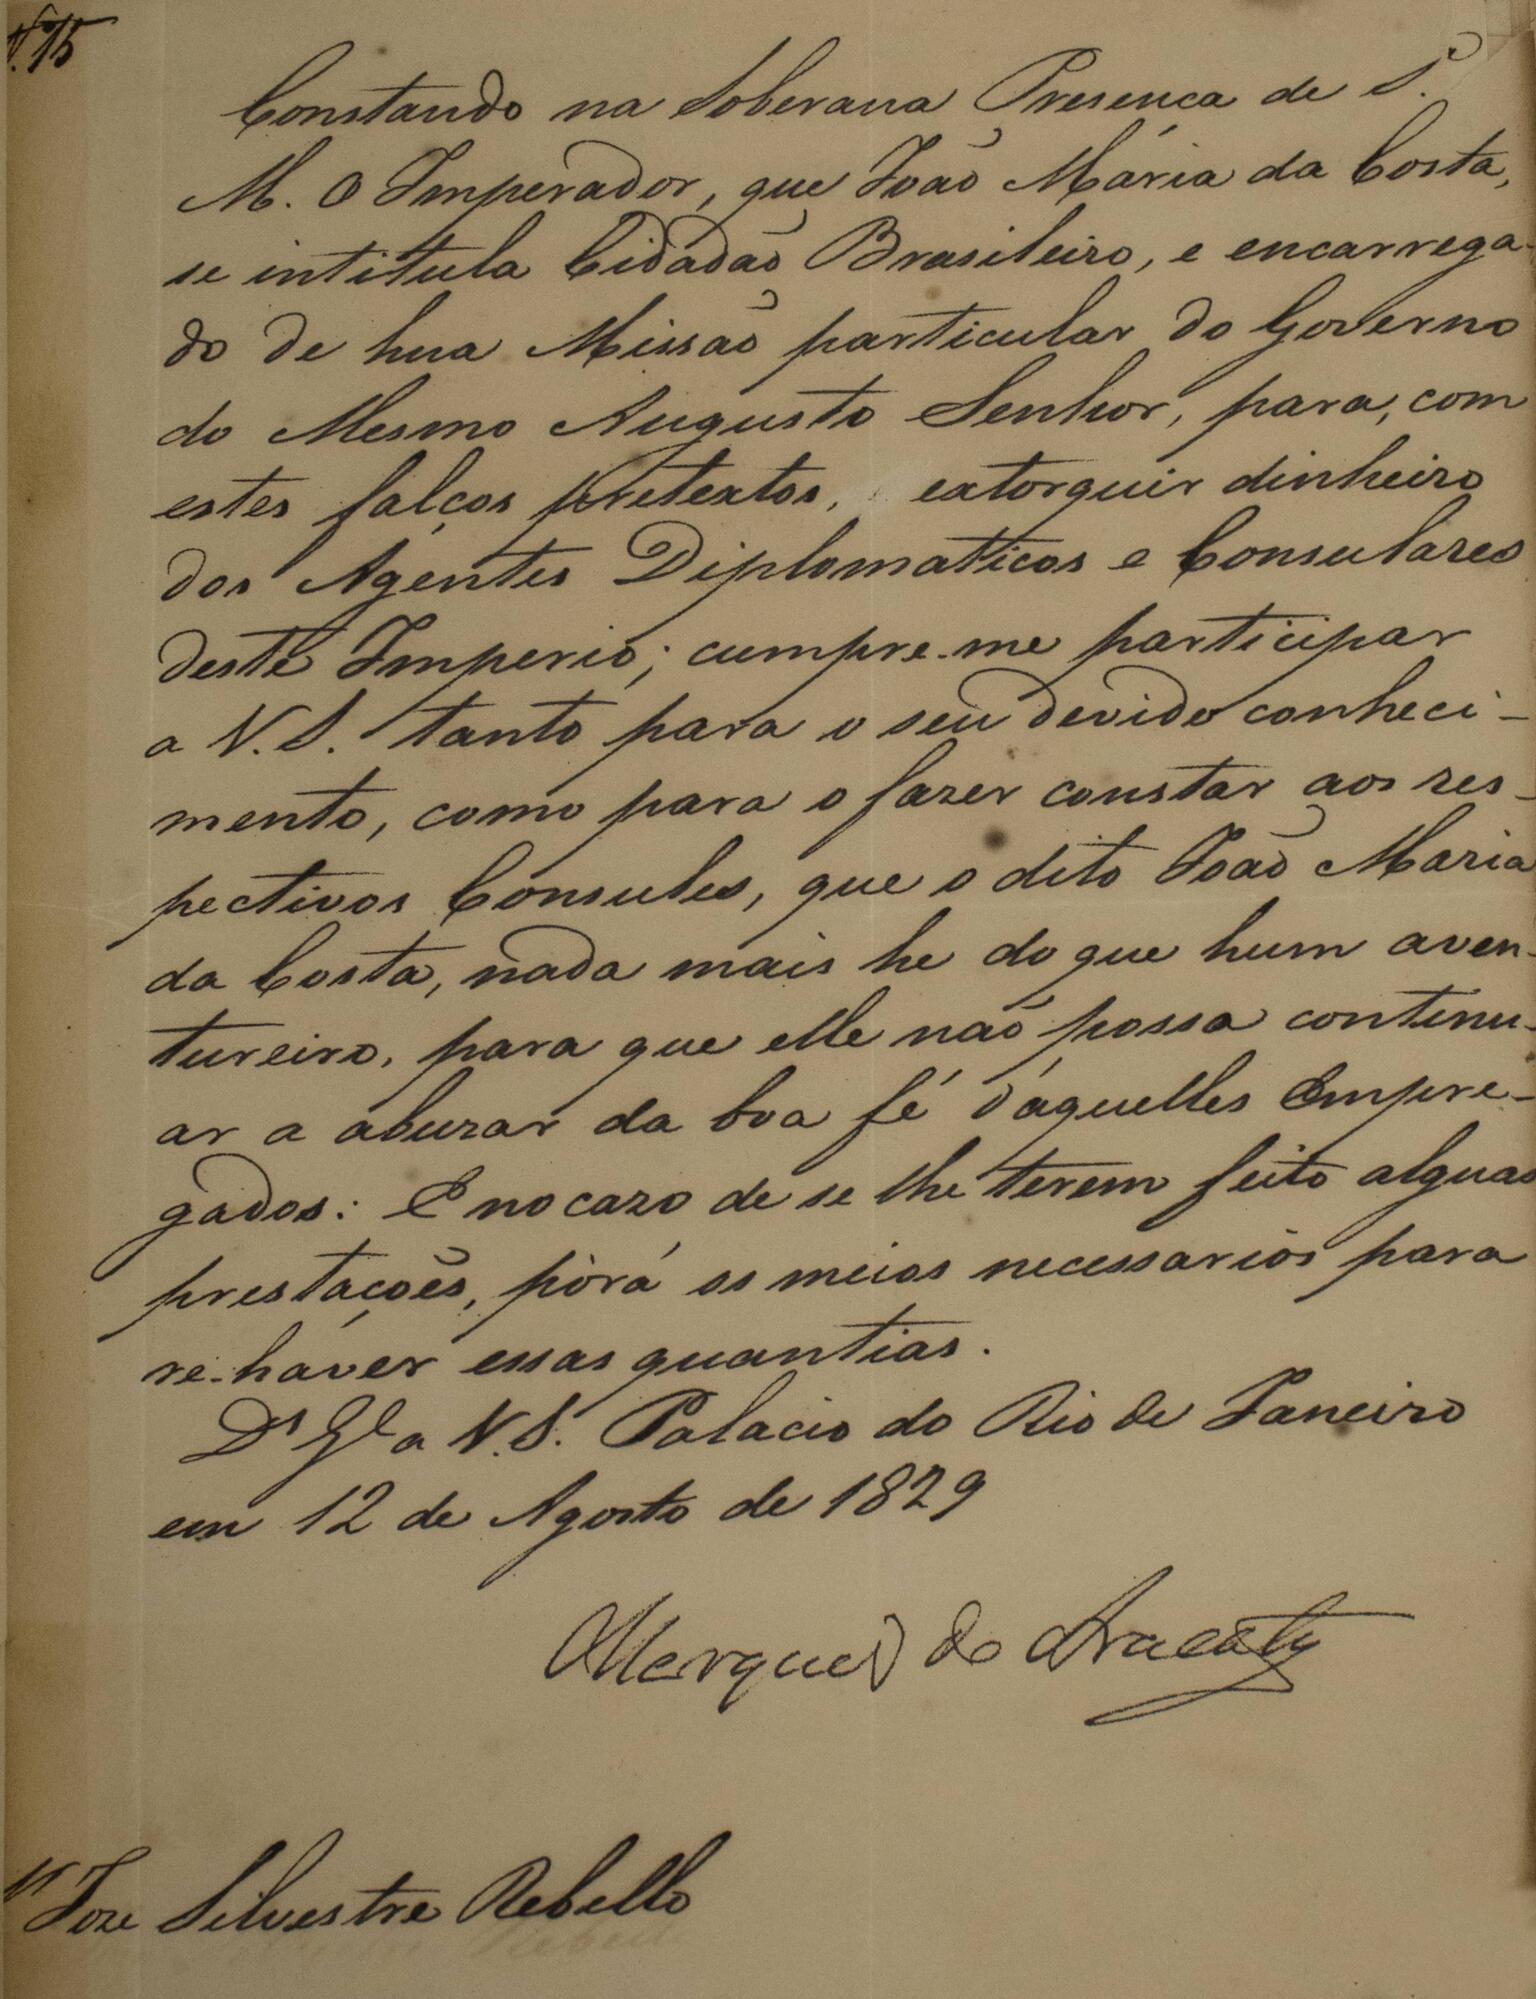 N.º 15
Constando na Soberana Presença de S.
M. O Imperador, que João Mária da Costa,
se intitula Cidadão Brasileiro, e encarrega-
do de hua Missão particular do Governo
do Mesmo Augusto Senhor, para, com
estes falços pretextos, extorquir dinheiro
dos Agentes Diplomaticos e Consulares
deste Imperio; cumpre-me participar
a V. S. tanto para o seu devido conheci-
mento, como para o fazer constar aos res-
pectivos Consules, que o dito João Maria
da Costa, nada mais he do que hum aven-
tureiro, para que elle não possa continu-
ar a abuzar da boa fé d'aquelles Empre-
gados: E no cazo de se lhe terem feito alguas
prestações, porá os meios necessarios para
re-haver essas quantias.
Ds Ge a V. S. Palacio do Rio de Janeiro
em 12 de Agosto de 1829
Marquez do Aracaty
Joze Silvestre Rebello